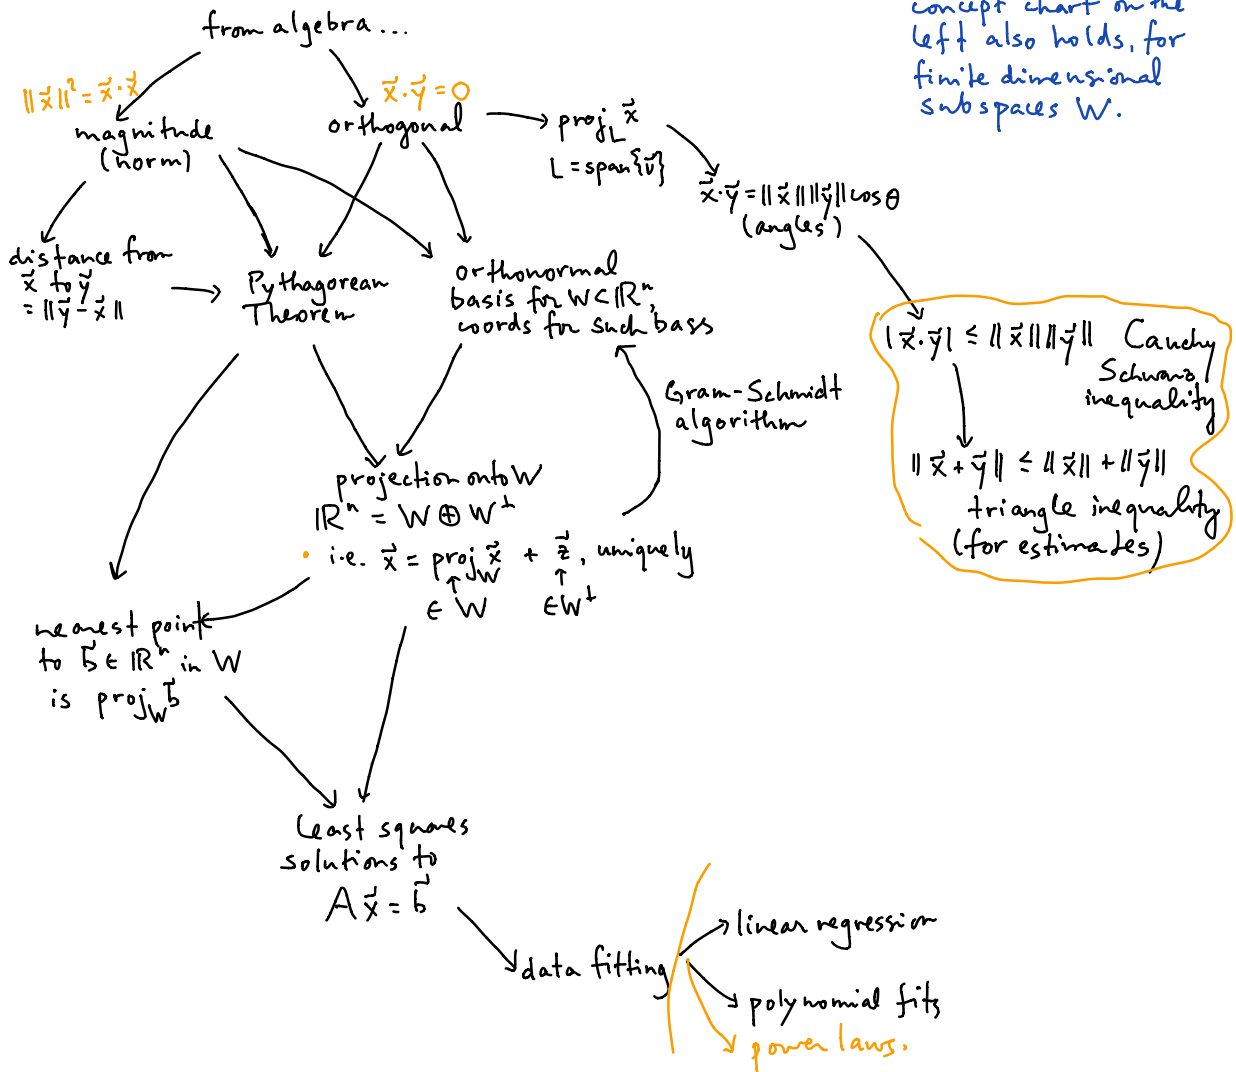 from algebra...
concept chart on the
left also holds, for
finite dimensional
subspaces W.
||x⃗||² = x⃗·x⃗
x⃗·y⃗ = 0
magnitude
(norm)
orthogonal
proj_L x⃗
L = span{v⃗}
x⃗·y⃗ = ||x⃗|| ||y⃗|| cos θ
(angles)
distance from
x⃗ to y⃗
= ||y⃗ - x⃗||
Pythagorean
Theorem
orthonormal
basis for W⊂ℝⁿ,
coords for such bass
|x⃗·y⃗| ≤ ||x⃗|| ||y⃗|| Cauchy
Schwarz
inequality
Gram-Schmidt
algorithm
||x⃗ + y⃗|| ≤ ||x⃗|| + ||y⃗||
triangle inequality
(for estimates)
projection onto W
ℝⁿ = W ⊕ W^⊥
i.e. x⃗ = proj_W x⃗ + z⃗, uniquely
∈ W ∈ W^⊥
nearest point
to b⃗ ∈ ℝⁿ in W
is proj_W b⃗
least squares
solutions to
A x⃗ = b⃗
data fitting
linear regression
polynomial fits
power laws.